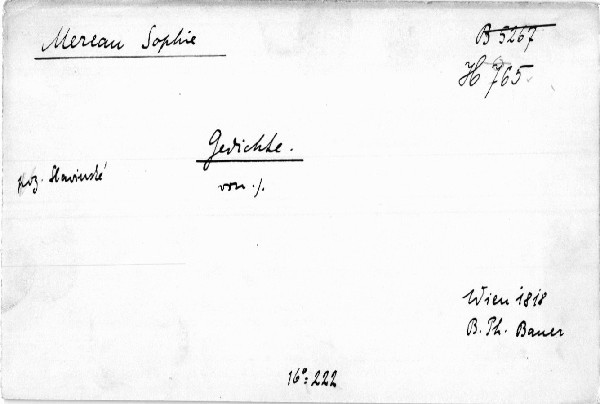 Mereau Sophie
B 5267
H 765
Gedichte.
von ./.
poz. Slavinské
Wien 1818
B. Ph. Bauer
16°: 222